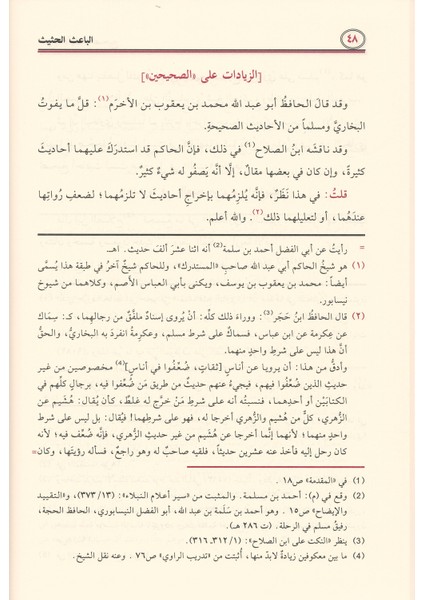 ٤٨
الباعث الحثيث
[الزيادات على «الصحيحين»]
وقد قالَ الحافظُ أبو عبد الله محمد بن يعقوب بن الأخرَم(١): قلَّ ما يفوتُ
البخاريَّ ومسلماً من الأحاديث الصحيحةِ.
وقد ناقشَه ابنُ الصلاح(١) في ذلك، فإنَّ الحاكم قد استدركَ عليهما أحاديثَ
كثيرةً، وإن كان في بعضها مقالٌ، إلَّا أنَّه يَصفُو له شيءٌ كثيرٌ.
قلتُ: في هذا نَظَرٌ، فإنَّه يُلزِمُهما بإخراجِ أحاديثَ لا تلزمُهما؛ لضعفِ رُواتِها
عندَهُما، أو لتعليلهما ذلك(٢). والله أعلم.
= رأيتُ عن أبي الفضل أحمد بن سلمة(٢) أنه اثنا عشرَ ألفَ حديث. اهـ.
(١) هو شيخُ الحاكم أبي عبد الله صاحبِ «المستدرك»، وللحاكم شيخٌ آخرُ في طبقة هذا يُسمَّى
أيضاً: محمد بن يعقوب بن يوسف، ويكنى بأبي العباس الأصم، وكلاهما من شيوخ
نيسابور.
(٢) قال الحافظُ ابنُ حَجَر(٣): ووراءَ ذلك كلِّه: أنْ يُروى إسنادٌ ملفَّقٌ من رجالِهِما، كـ: سِمَاك
عن عِكرمة عن ابن عباس، فسماكٌ على شرط مسلم، وعكرمةُ انفردَ به البخاريُّ، والحقُّ
أنَّ هذا ليس على شرطِ واحدٍ منهما.
وأدقُّ من هذا: أن يرويا عن أناسٍ [ثقاتٍ، ضُعِّفُوا في أناسٍ](٤) مخصوصين من غير
حديثِ الذين ضُعِّفوا فيهم، فيجيءُ عنهم حديثٌ من طريقِ مَن ضُعِّفوا فيه، برجالٍ كلُّهم في
الكتابَيْن أو أحدِهما، فنسبتُه أنه على شرطِ مَنْ خرَّج له غلطٌ، كأن يُقالَ: هُشَيم عن
الزُّهري، كلٌّ من هُشَيم والزُّهري أخرجا له، فهو على شرطِهما! فيُقال: بل ليس على شرط
واحدٍ منهما؛ لأنهما إنَّما أخرجا عن هُشَيم من غير حديثِ الزُّهري، فإنَّه ضُعِّفَ فيه؛ لأنه
كان رحل إليه فأخذ عنه عشرين حديثاً، فلقيه صاحبٌ له وهو راجعٌ، فسألَه رؤيتَها، وكان=
(١) في «المقدمة» ص١٨.
(٢) وقع في (م): أحمد بن مسلمة. والمثبت من «سير أعلام النبلاء»: (١٣/ ٣٧٣)، و«التقييد
والإيضاح» ص١٥. وهو أحمد بن سَلَمة بن عبد الله، أبو الفضل النيسابوري، الحافظ الحجة،
رفيقُ مسلم في الرحلة. (ت ٢٨٦ هـ).
(٣) ينظر: «النكت على ابن الصلاح»: (١/ ٣١٢ـ ٣١٦).
(٤) ما بين معكوفين زيادةٌ لابدّ منها، أُثبتت من «تدريب الراوي» ص٧٦. وعنه نقل الشيخ.